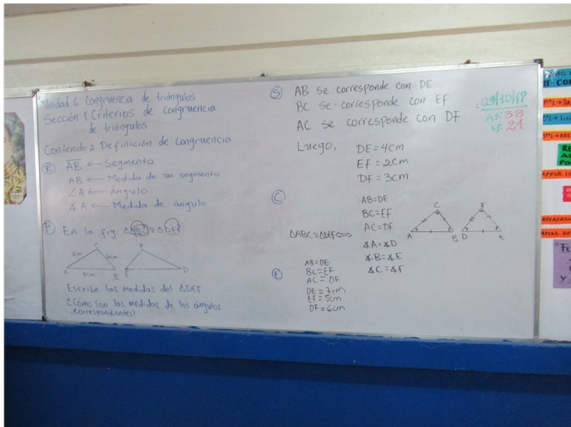 Unidad 6: Congruencia de triángulos
Sección 1: Criterios de congruencia
de triángulos
Contenido 2: Definición de congruencia
(R) AB ← Segmento
AB ← Medida de un segmento
∠A ← Ángulo
∡A ← Medida de ángulo
(P) En la fig ΔABC≅ΔDEF
A
B
C
D
Escribe las medidas del ΔDEF
¿Cómo son las medidas de los ángulos
correspondientes?
(S) AB se corresponde con DE
BC se corresponde con EF
AC se corresponde con DF
Luego,
DE = 4cm
EF = 2cm
DF = 3cm
(C)
AB=DE
BC=EF
AC=DF
ΔABC≅ΔDEF⟺
∡A=∡D
∡B=∡E
∡C=∡F
C
A
B
F
D
(E)
AB=DE
BC=EF
AC=DF
DE=7cm
EF=5cm
DF=6cm
AS: 38
21